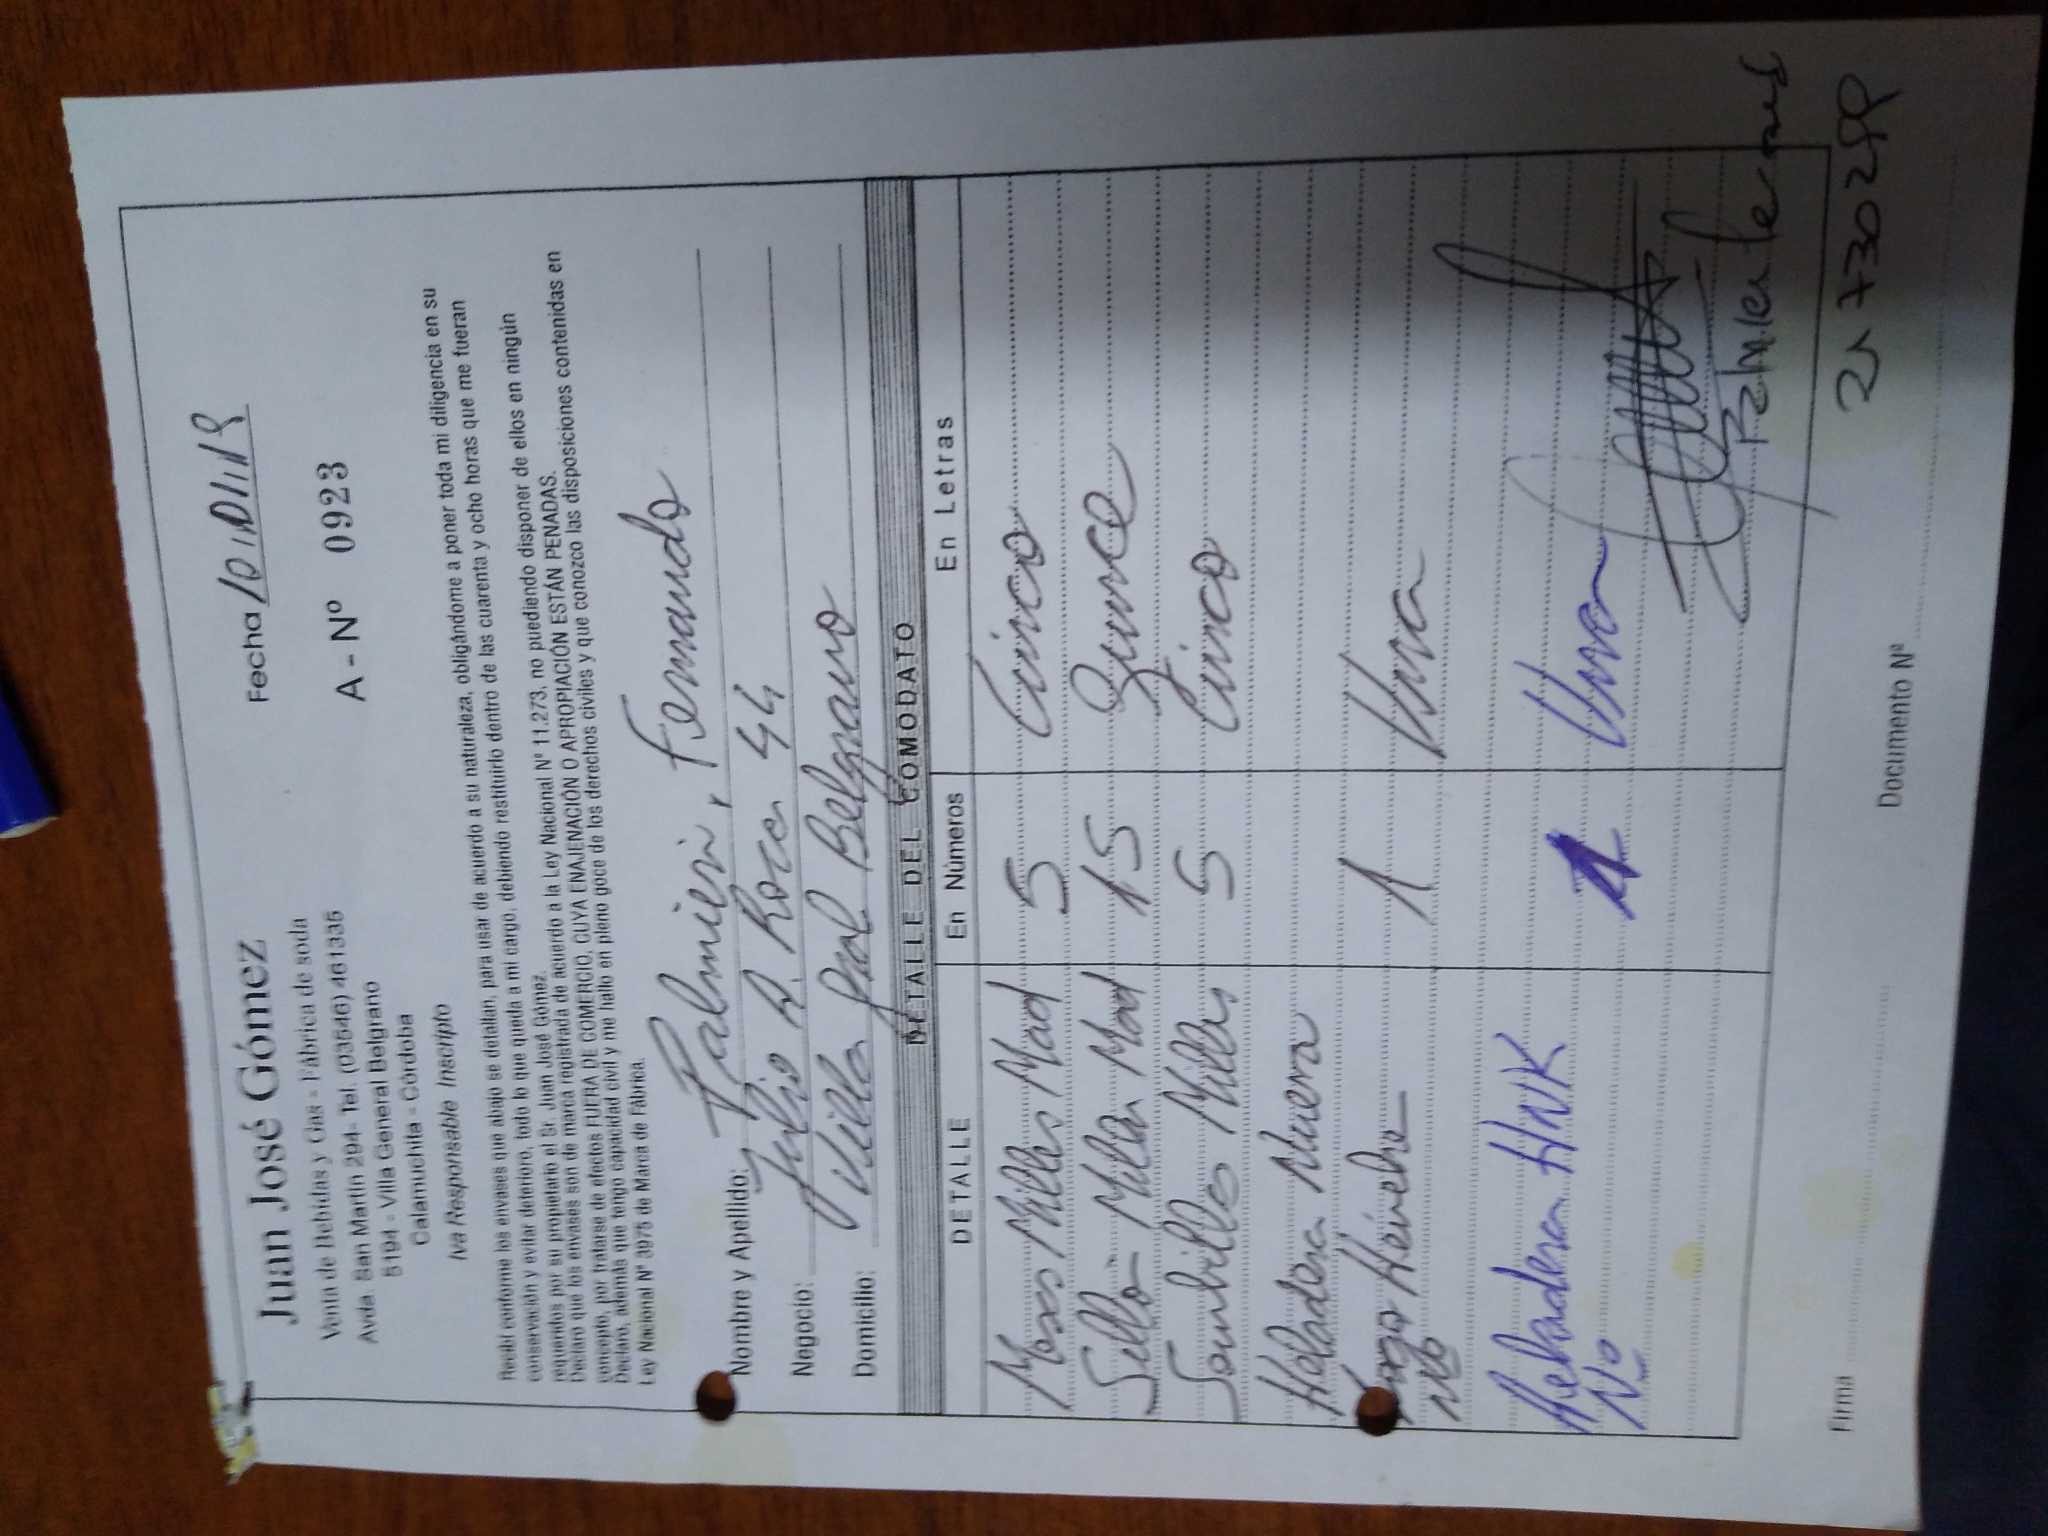 Juan José Gómez
Venta de Bebidas y Gas - Fábrica de soda
Avda. San Martín 294- Tel. (03546) 461335
5194 - Villa General Belgrano
Calamuchita - Córdoba
Iva Responsable Inscripto
Fecha 10/01/19
A - Nº 0923
Recibí conforme los envases que abajo se detallan, para usar de acuerdo a su naturaleza, obligándome a poner toda mi diligencia en su
conservación y evitar deterioro, todo lo que queda a mi cargo, debiendo restituirlo dentro de las cuarenta y ocho horas que me fueran
requeridos por su propietario el Sr. Juan José Gómez.
Declaro que los envases son de marca registrada de acuerdo a la Ley Nacional Nº 11.273, no pudiendo disponer de ellos en ningún
concepto, por tratarse de efectos FUERA DE COMERCIO, CUYA ENAJENACIÓN O APROPIACIÓN ESTÁN PENADAS.
Declaro, además que tengo capacidad civil y me hallo en pleno goce de los derechos civiles y que conozco las disposiciones contenidas en
Ley Nacional Nº 3975 de Marca de Fábrica.
Nombre y Apellido: Palmieri, Fernando
Negocio: Julio A. Roca 44
Domicilio: Villa Gral Belgrano
DETALLE DEL COMODATO
DETALLE En Números En Letras
Mesas Miller Mad 5 Cinco
Silla Miller Mad 15 Quince
Sombrillas Miller 5 Cinco
Heladera Nueva
Heineke 1 Una
Nº
Heladera HNK 1 Una
Nº
21730299
Firma Documento Nº